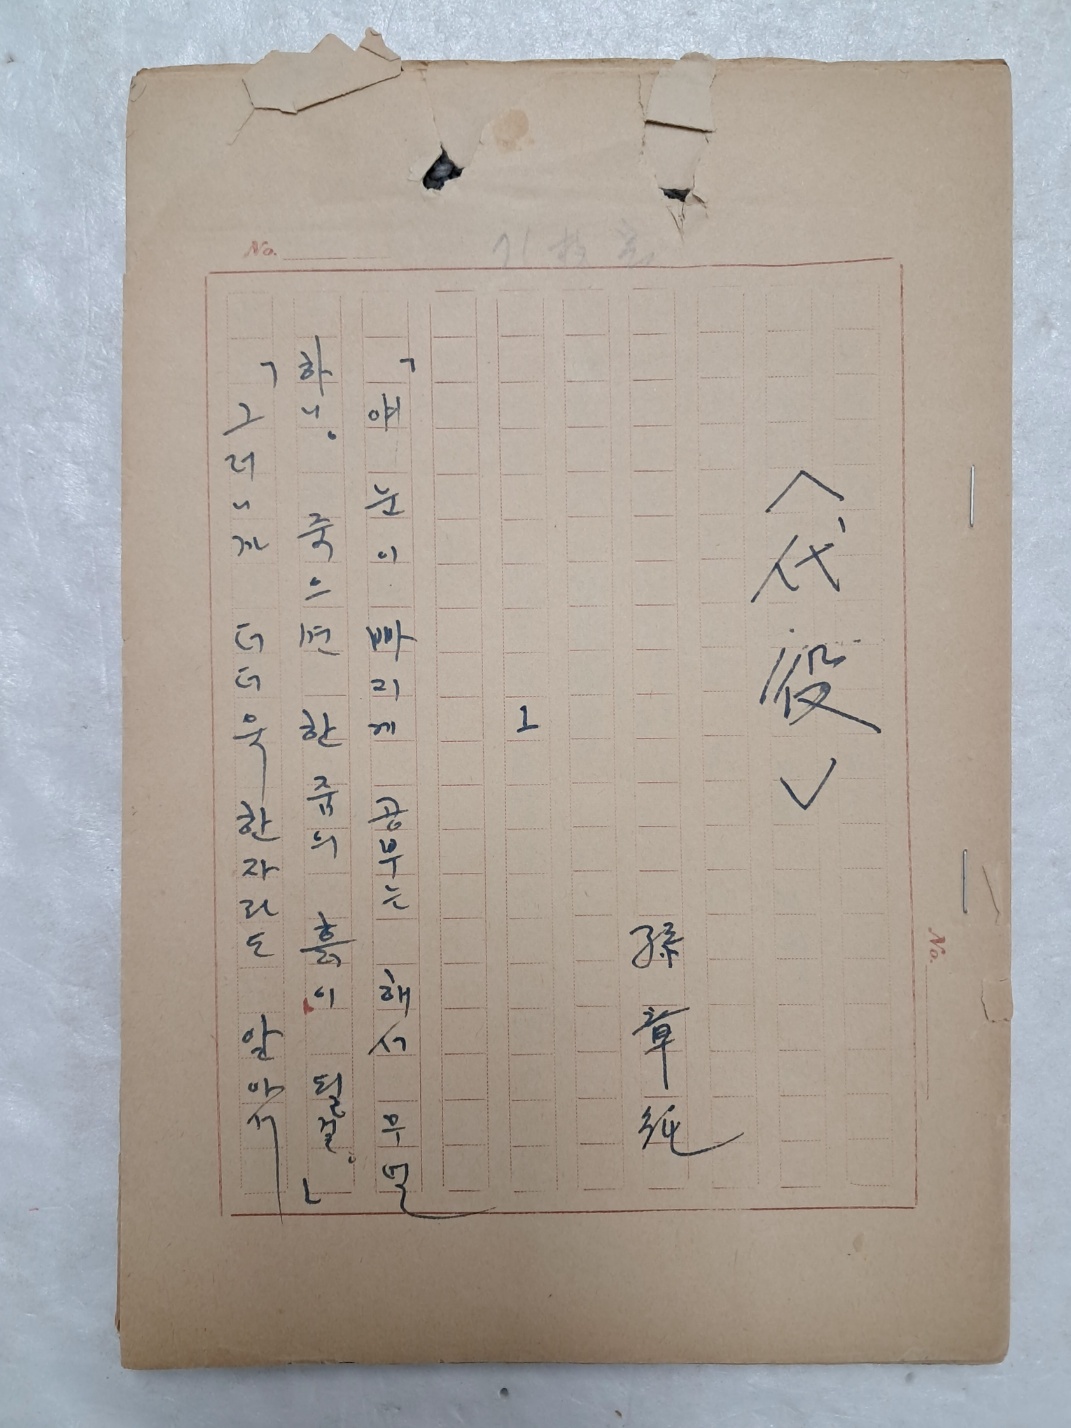 No.
〈代役〉
孫章純
1
「얘 눈이 빠지게 공부는 해서 무얼
하니. 죽으면 한줌의 흙이 될걸.」
「그러니까 더더욱 한자라도 알아서
No.